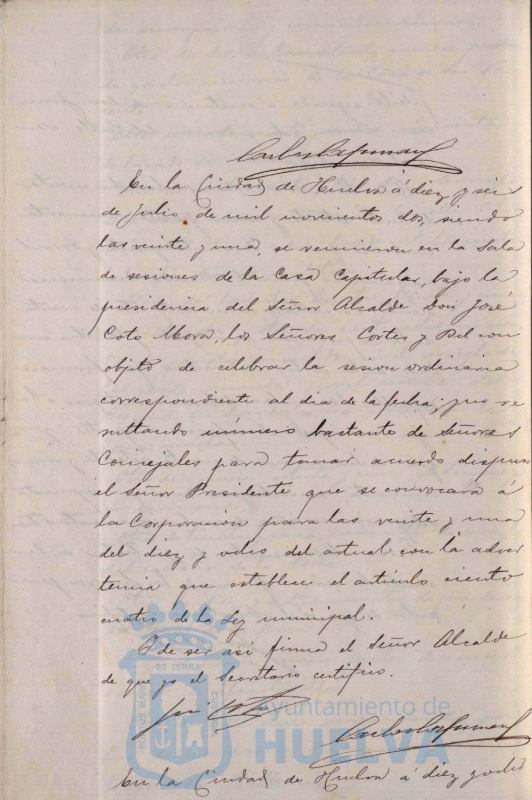 En la Ciudad de Huelva á diez y seis
de Julio de mil novecientos dos, siendo
las veinte y una, se reunieron en la Sala
de sesiones de la Casa Capitular, bajo la
presidencia del Señor Alcalde Don José
Coto Mora, los Señores Cortes y con
objeto de celebrar la sesion ordinaria
correspondiente al dia de la fecha; y no re
sultando numero bastante de Señores
Concejales para tomar acuerdo dispuso
el Señor Presidente que se convocara á
la Corporacion para las veinte y una
del diez y ocho del actual con la adver
tencia que establece el artículo ciento
cuatro de la Ley municipal.
Y de ser asi firma el Señor Alcalde
de que yo el Secretario certifico.
Ayuntamiento de
HUELVA
En la Ciudad de Huelva á diez y ocho